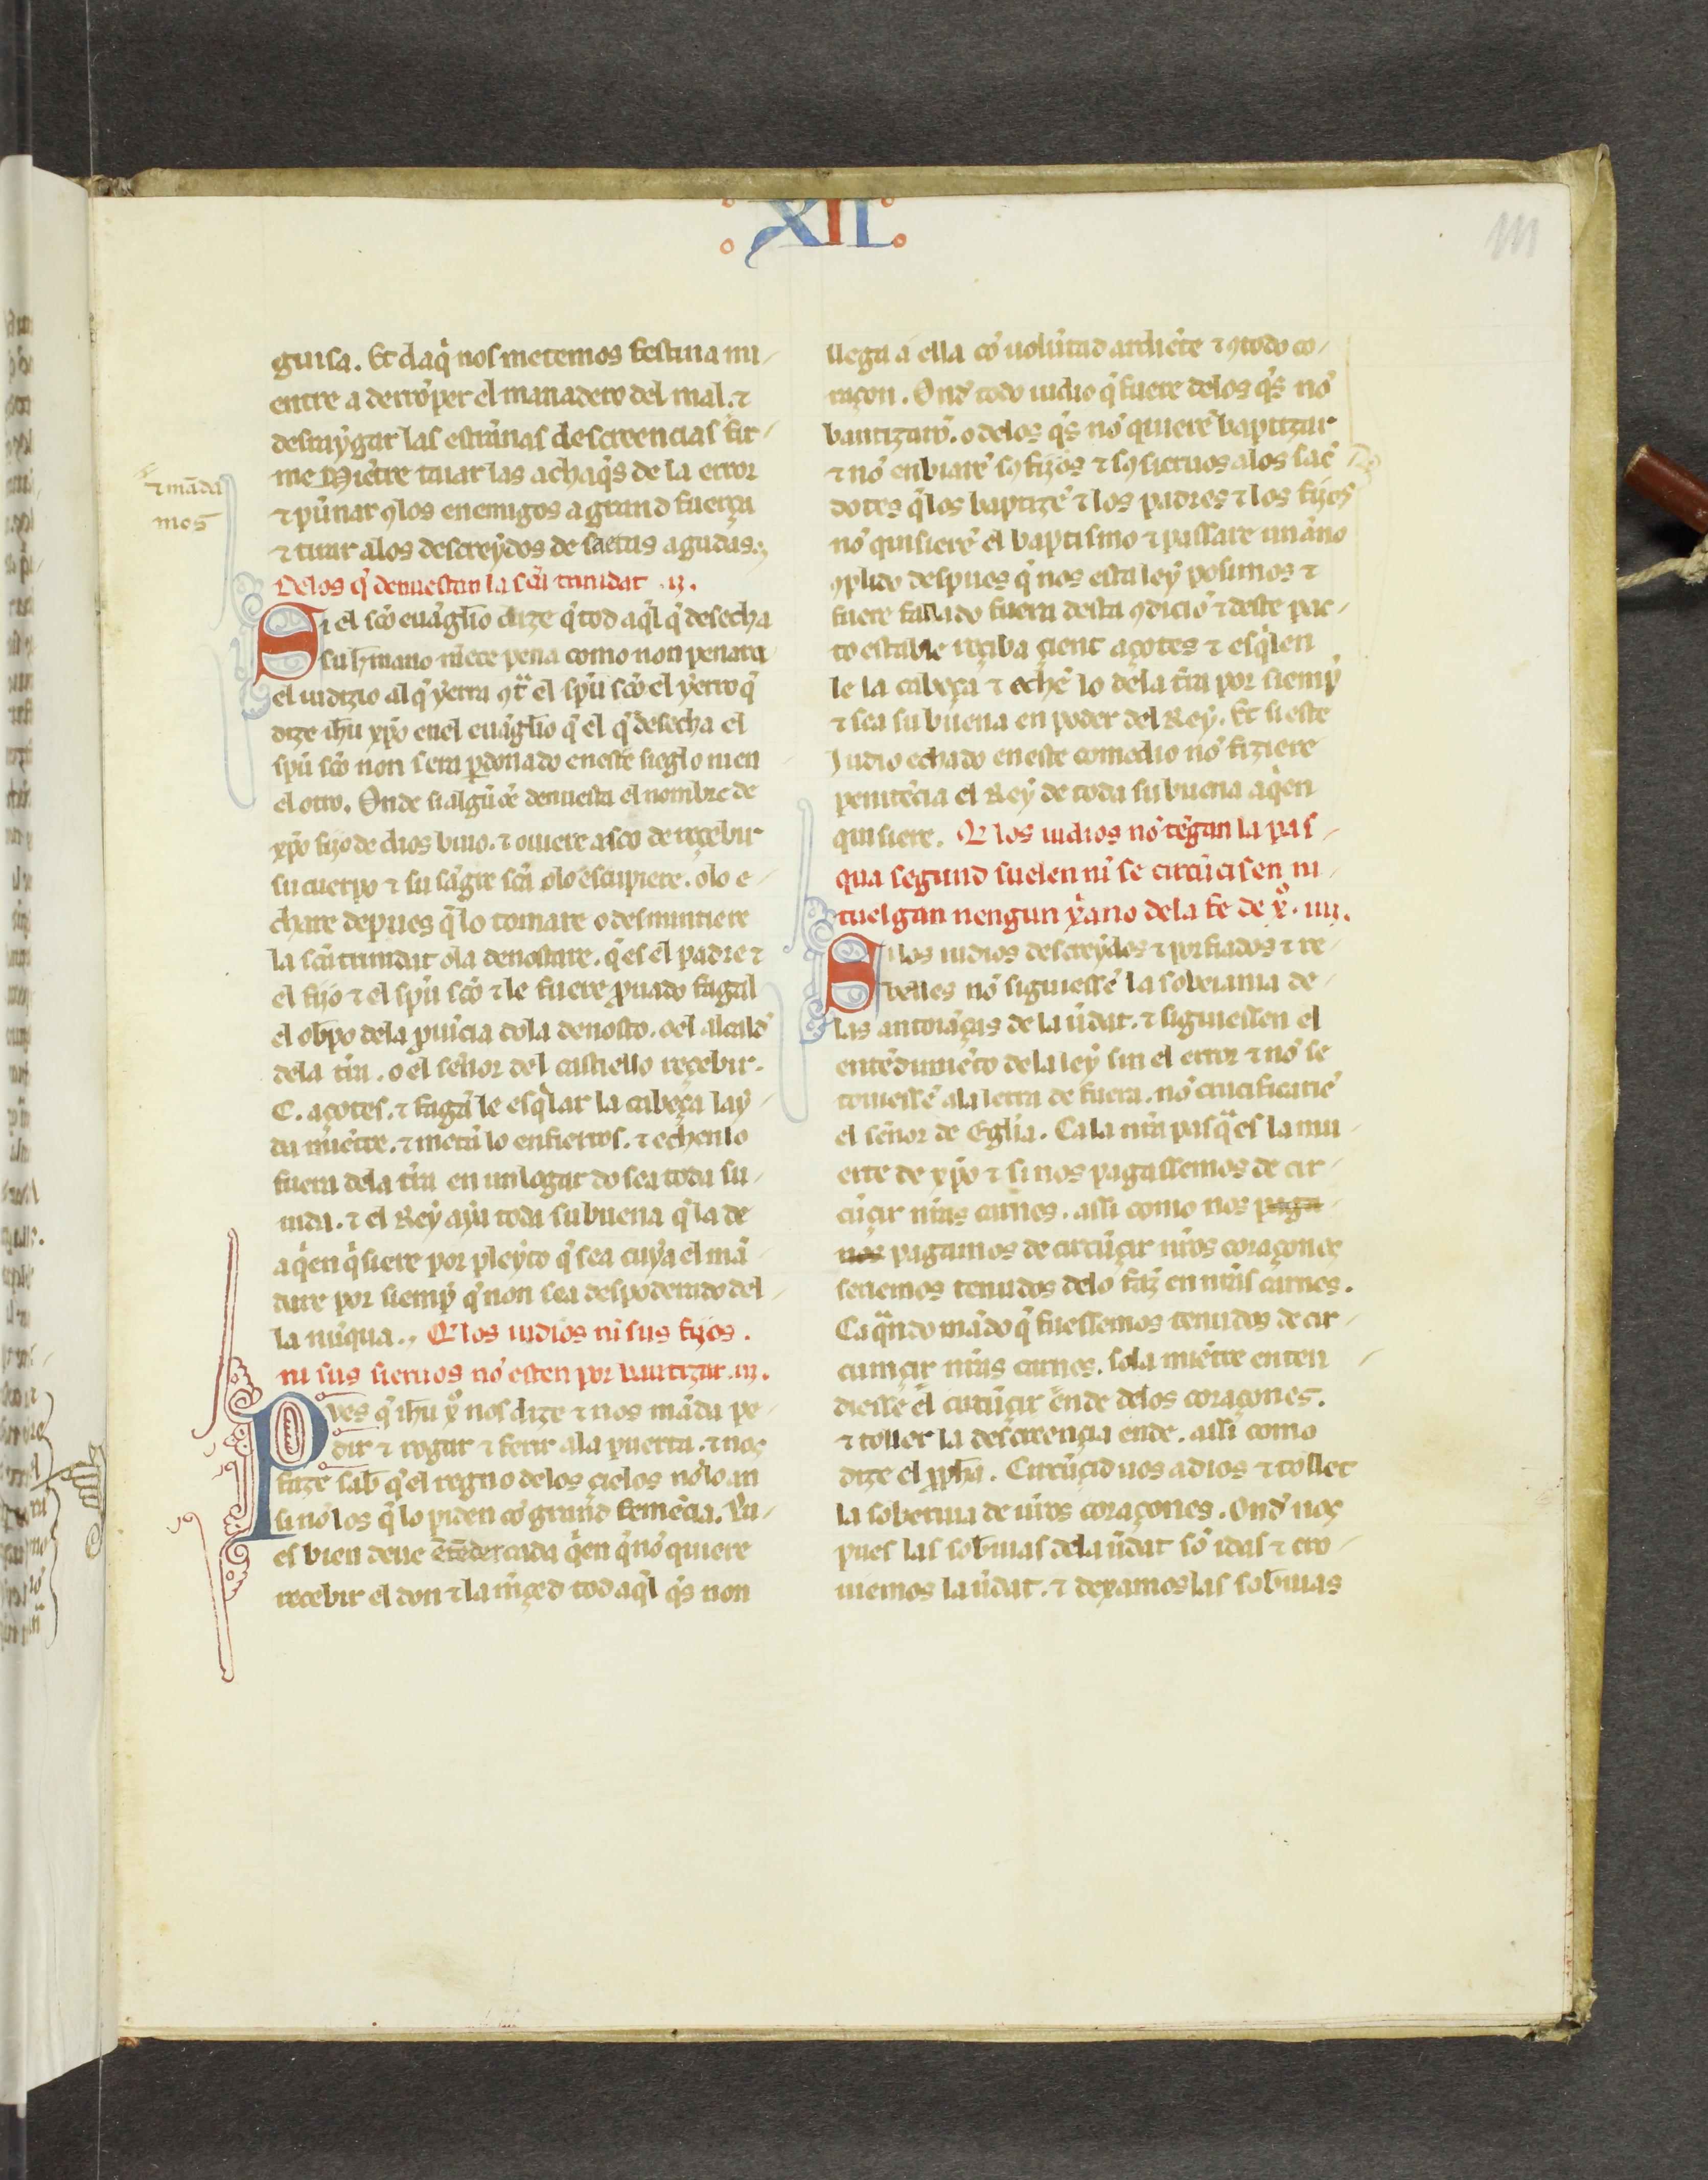 XII
111
guisa. Et daq̇ nos metemos festiua mi-
entre a derrōper el manadero del mal. ⁊
desraẏgar las estrānas descreencias fir-
me miētre taiar las achaq̄s de la error
⁊ māda
mos
⁊ pūnar ꝯlos enemigos a grand fuerça
⁊ tirar alos descreẏdos de saetas agudas.
Delos q̄ denuestan la sc̄a trinidat .ij.
Si el sc̄o euāglio dize q̄ tod aq̄l q̄ desecha
su h̄mano m̄ece pena como non penara
el iudizio al q̄ yerra ꝯt̄ el sp̄u sc̄o el yerro q̄
dize ih̄u xp̄o enel euāglio q̄ el q̄ desecha el
sp̄u sc̄o non sera ꝑdonado eneste sieglo nien
el otro. Onde si algūo denuesta el nombre de
xp̄o fijo de dios biuo. ⁊ ouiere asco de reçebir
su cuerpo ⁊ su sāgre sc̄a olo escupiere. olo e-
chare depues q̄ lo tomare o desmintiere
la sc̄a trinidat ola denostare. q̄ es el padre ⁊
el fijo ⁊ el sp̄u sc̄o ⁊ le fuere ꝓuado fagal
el obp̄o dela ꝓuīcia dola denosto. oel alcald̄
dela t̄ra. o el señor del castiello reçebir.
C. açotes. ⁊ fagā le esq̄lar la cabeça laẏ-
da miētre. ⁊ metā lo enfierros. ⁊ echenlo
fuera dela t̄ra en un logar do sea toda su-
uida. ⁊ el Reẏ aẏa toda su buena q̄ la de
aq̇en q̇siere por pleẏto q̄ sea cuẏa el mā-
dare por siemp̄ q̄ non sea despoderado del-
la nūqua. Q̄ los iudios ni sus fijos.
ni sus sieruos nō esten por bautizar .iij.
Pves q̄ ih̄u x̄o nos dize ⁊ nos māda pe-
dir ⁊ rogar ⁊ ferir ala puerta. ⁊ nos
faze sab̄ q̄ el regno delos çielos nō lo an
sinō los q̄ lo piden cō grand femēcia. Pu-
es bien deue ētēder cada q̇en q̄ nō quiere
recebir el don ⁊ la m̄çed tod aq̄l q̄s non
llega a ella cō uolūtad ardiēte ⁊ ꝯtodo co-
raçon. Ond̄ todo iudio q̄ fuere delos q̄s nō
bautizarō. o delos q̄s nō quierē baptizar
⁊ nō enbiarē sꝯ fijos ⁊ sꝯ sieruos alos sac̄
dotes q̄ los baptizē ⁊ los padres ⁊ los fijos
nō quisierē el baptismo ⁊ passare un āno
ꝯplido despues q̄ nos esta leẏ posimos ⁊
fuere fallado fuera desta ꝯdiciō ⁊ deste par-
to estable reçiba çient açotes ⁊ esq̄len
le la cabeça ⁊ echē lo dela t̄ra por siemp̄
⁊ sea su buena en poder del Reẏ. Et si este
Judio echado eneste comedio nō fiziere
penitēcia el Reẏ de toda su buena aq̇en
quisiere. Q̄ los iudios nō tēgan la pas-
qua segund suelen nī se circūcisen ni
tuelgan nengun x̄ano dela fe de x̄o .iiij.
Si los iudios descreẏdos ⁊ porfiados ⁊ re-
belles nō siguiessē la soberania de-
las antoiāças de la ūdat. ⁊ siguiessen el
entēdimiēto dela leẏ sin el error ⁊ nō se
touiessē ala letra de fuera. nō crucificariē
el señor de Egl̄ia. Ca la nr̄a pasq̄a es la mu-
erte de xp̄o ⁊ si nos pagassemos de cir-
cūçir nr̄as carnes. assi como nos paga-
mos pagamos de circūçir nr̄os coraçones
seriemos tenudos delo faz̄ en nr̄as carnes.
Ca q̄ndo mādo q̄ fuessemos tenudos de cir-
cumçir nr̄as carnes. sola miētre enten
diesse el circūçir ende delos coraçones.
⁊ toller la descreençia ende. assi como
dize el ꝓph̄a. Circūçid uos a dios ⁊ tollet
la soberuia de ur̄os coraçones. Ond̄ nos
pues las sob̄uias dela ūdat sō idas ⁊ cro-
uiemos la ūdat. ⁊ dexamos las sob̄uias